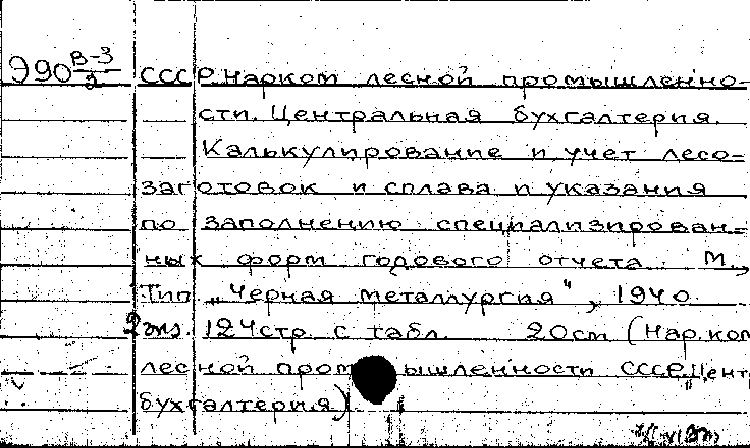 Э90 В-3/2 СССР. Нарком лесной промышленно-
сти. Центральная бухгалтерия.
Калькулирование и учет лесо=
заготовок и сплава и указания
по заполнению специализирован=
ных форм годового отчета. М.,
Тип. „Черная металлургия", 1940.
2 экз. 124 стр. с табл. 20 см (Нар. ком
лесной промышленности СССР. Цент
бухгалтерия)